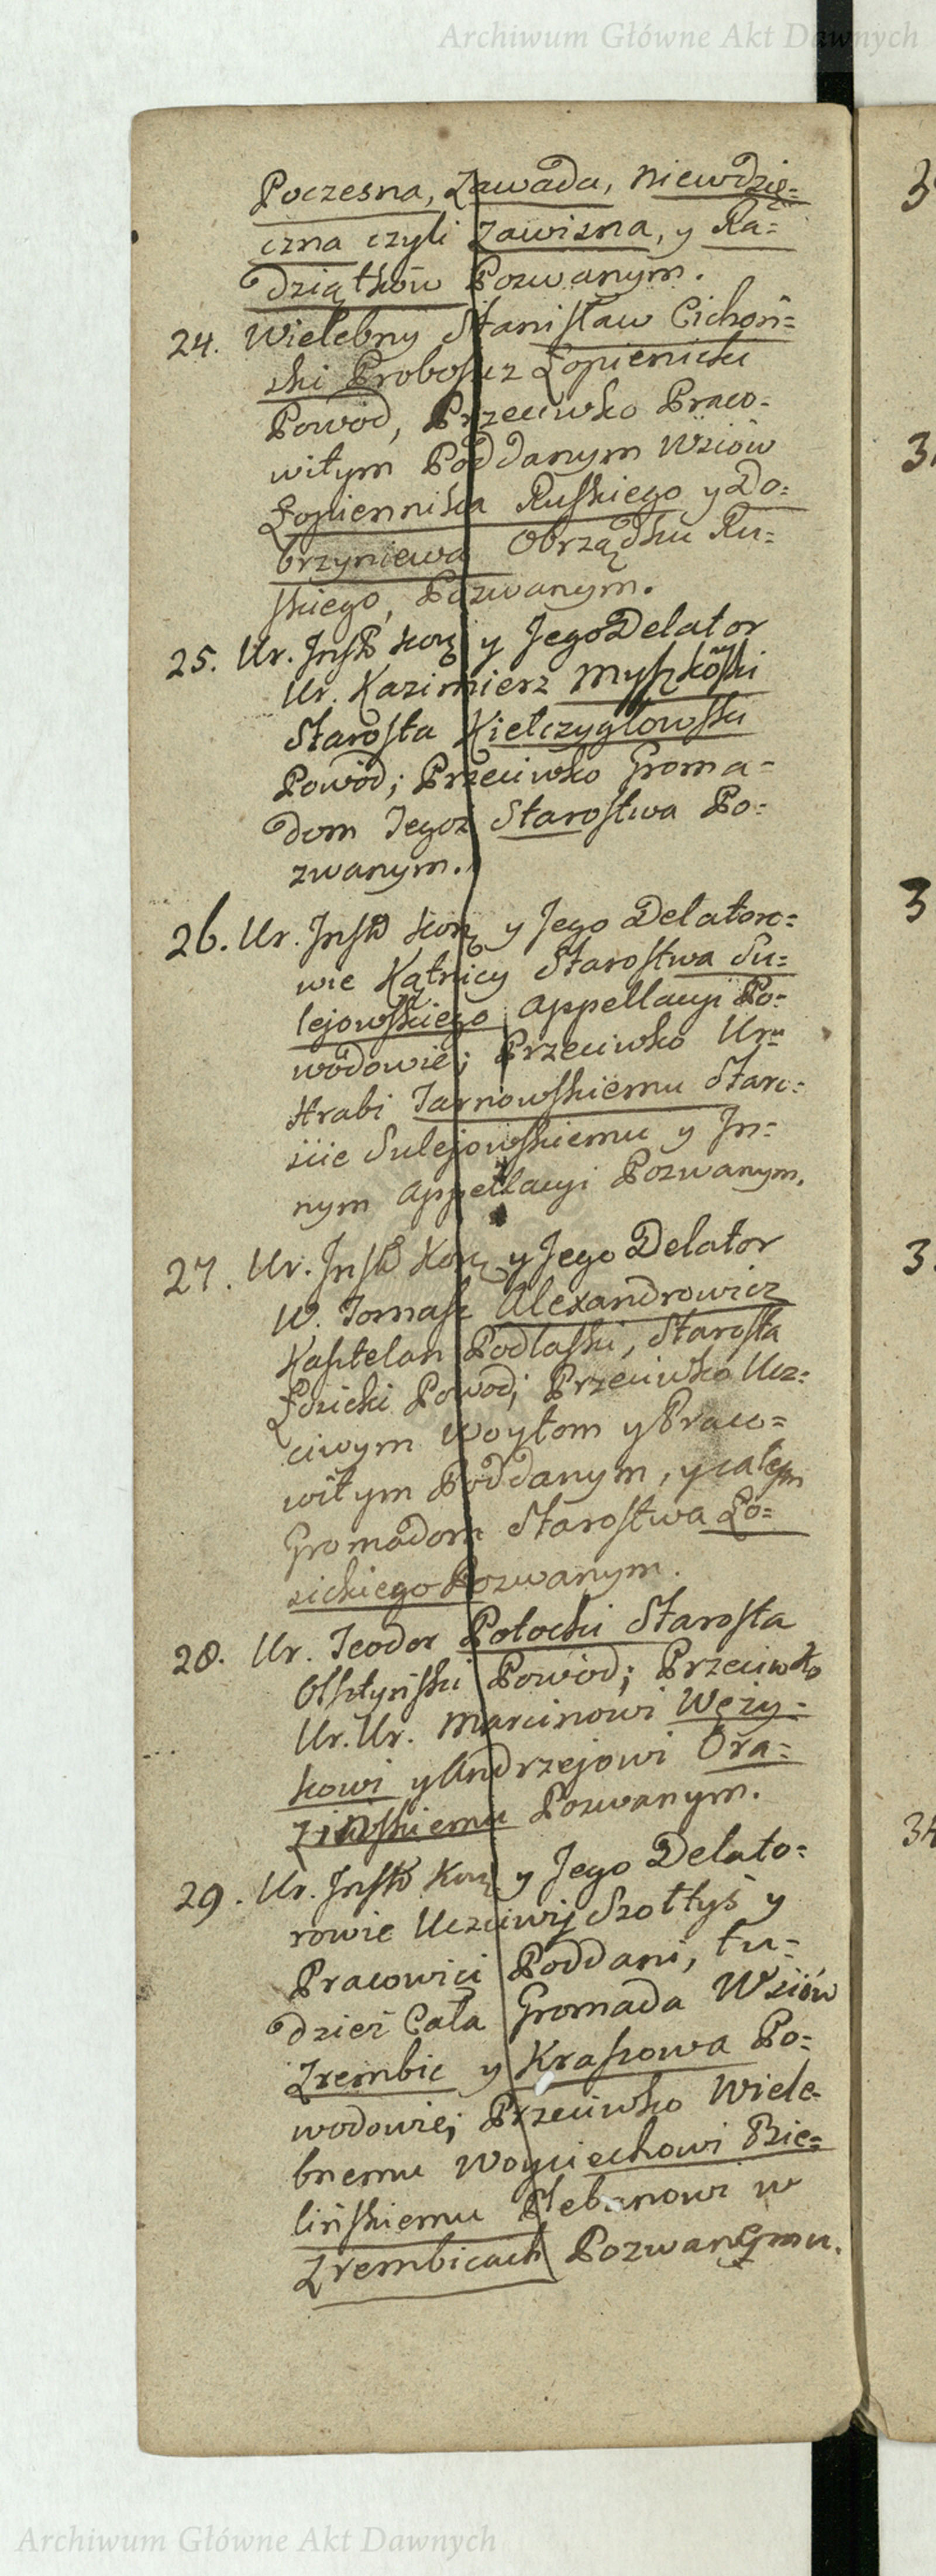 Archiwum Główne Akt Dawnych
Poczesna, Zawada, Niewdzię=
czna czyli Zawisna, y Ra=
dziątków Pozwanym.
24. Wielebny Stanisław Cichoń=
ski Proboszcz Łopienicki
Powod, Przeciwko Praco=
witym Poddanym Wsiów
Łopiennika Ruskiego y Do=
brzyniewa Obrządku Ru=
skiego, Pozwanym.
25. Ur. Inst Kor y Jego Delator
Ur. Kazimierz Myszkoski
Starosta Kiełczygłowski
Powod; Przeciwko Groma=
dom Tegoż Starostwa Po=
zwanym.
26. Ur. Inst Kor y Jego Delatoro=
wie Kątnicy Starostwa Su=
lejowskiego Appellacyi Po=
wodowie; Przeciwko Ur
Hrabi Tarnowskiemu Staro=
ście Sulejowskiemu y In=
nym Appellacyi Pozwanym.
27. Ur. Inst Kor y Jego Delator
W. Tomasz Alexandrowicz
Kasztelan Podlaski, Starosta
Łosicki Powod; Przeciwko Ucz=
ciwym Woytom y Praco=
witym Poddanym, y całym
Gromadom Starostwa Ło=
sickiego Pozwanym.
28. Ur. Teodor Potocki Starosta
Olsztyński Powod; Przeciwko
Ur. Ur. Marcinowi Węży=
kowi y Andrzejowi Bra=
Pozwanym.
29. Ur. Inst Kor y Jego Delato=
rowie Uczciwij Szołtys y
Pracowici Poddani, tu=
dzież Cała Gromada Wsiów
Zrembic y Kraszowa Po=
wodowie; Przeciwko Wiele=
bnemu Woyciechowi Bie=
lińskiemu Plebanowi w
Zrembicach Pozwanemu.
Archiwum Główne Akt Dawnych